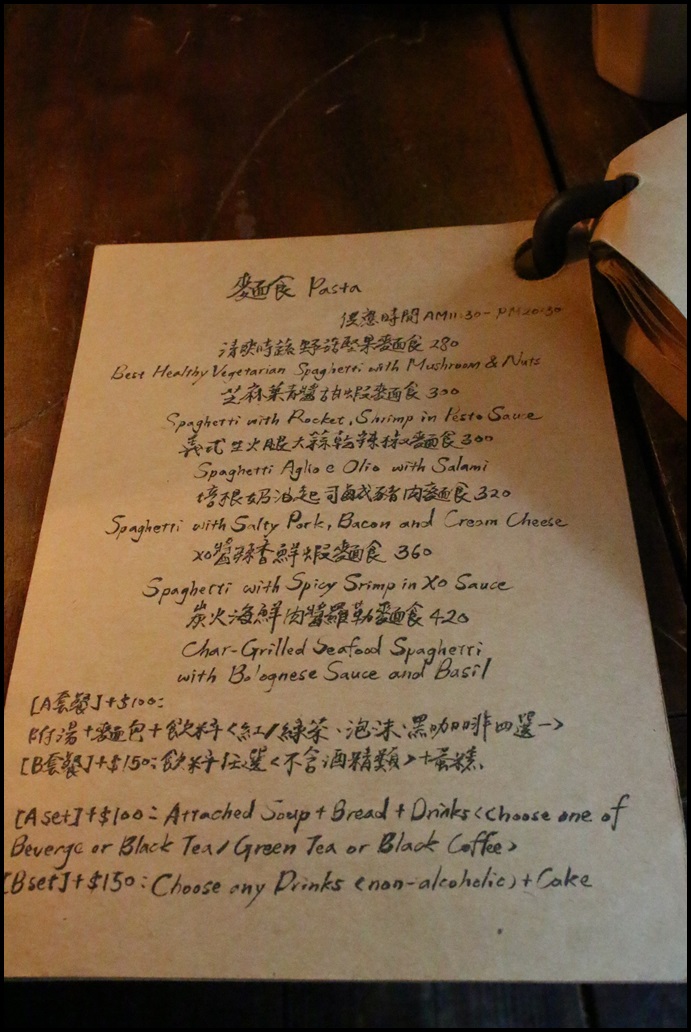 麵食 Pasta
供應時間AM11:30-PM20:30
清爽時蔬野菇堅果麵食 280
Best Healthy Vegetarian Spaghetti with Mushroom & Nuts
芝麻葉青醬甜蝦麵食 300
Spaghetti with Rocket, Shrimp in Pesto Sauce
義式生火腿大蒜乾辣椒麵食 300
Spaghetti Aglio e Olio with Salami
培根奶油起司鹹豬肉麵食 320
Spaghetti with Salty Pork, Bacon and Cream Cheese
XO醬辣香鮮蝦麵食 360
Spaghetti with Spicy Srimp in XO Sauce
炭火海鮮肉醬羅勒麵食 420
Char-Grilled Seafood Spaghetti
with Bolognese Sauce and Basil
[A套餐]+$100:
附湯+麵包+飲料<紅/綠茶、泡沫、黑咖啡四選一>
[B套餐]+$150:飲料任選<不含酒精類>+蛋糕.
[A set]+$100: Attached Soup + Bread + Drinks <choose one of
Beverge or Black Tea/Green Tea or Black Coffee>
[B set]+$150: Choose any Drinks <non-alcoholic>+Cake